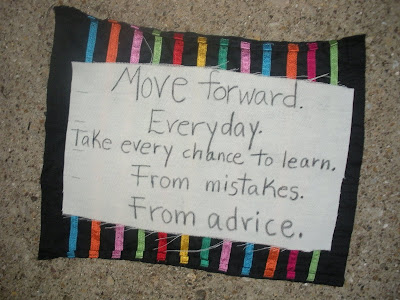 Move forward.
Everyday.
Take every chance to learn.
From mistakes.
From advice.